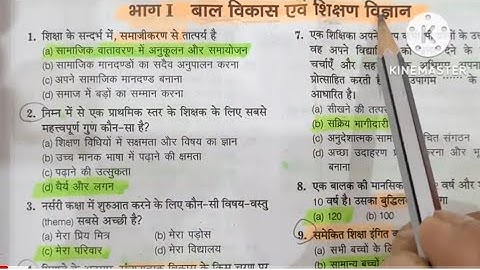 भाग I बाल विकास एवं शिक्षण विज्ञान
1. शिक्षा के सन्दर्भ में, समाजीकरण से तात्पर्य है
(a) सामाजिक वातावरण में अनुकूलन और समायोजन
(b) सामाजिक मानदण्डों का सदैव अनुपालन करना
(c) अपने सामाजिक मानदण्ड बनाना
(d) समाज में बड़ों का सम्मान करना
2. निम्न में से एक प्राथमिक स्तर के शिक्षक के लिए सबसे
महत्त्वपूर्ण गुण कौन-सा है?
(a) शिक्षण विधियों में सक्षमता और विषय का ज्ञान
(b) उच्च मानक भाषा में पढ़ाने की क्षमता
(c) पढ़ाने की उत्सुकता
(d) धैर्य और लगन
3. नर्सरी कक्षा में शुरुआत करने के लिए कौन-सी विषय-वस्तु
(theme) सबसे अच्छी है?
(a) मेरा प्रिय मित्र (b) मेरा पड़ोस
(c) मेरा परिवार (d) मेरा विद्यालय
7. एक शिक्षिका अपने
वह अपने विद्या के
चर्चाएँ और सह
प्रोत्साहित करती
आधारित है।
(a) सीखने की तत्प
(b) सक्रिय भागीदारी
(c) अनुदेशात्मक संगठन
(d) अच्छा उदाहरण करना और
8. एक बालक की मानसिक वर्ष और
10 वर्ष है। उसका बुद्धि
(a) 120 (b) 100
9. समेकित शिक्षा इंगित
(a) सभी बच्चों के
(b) सामान्य बच्चों
KINEMASTER